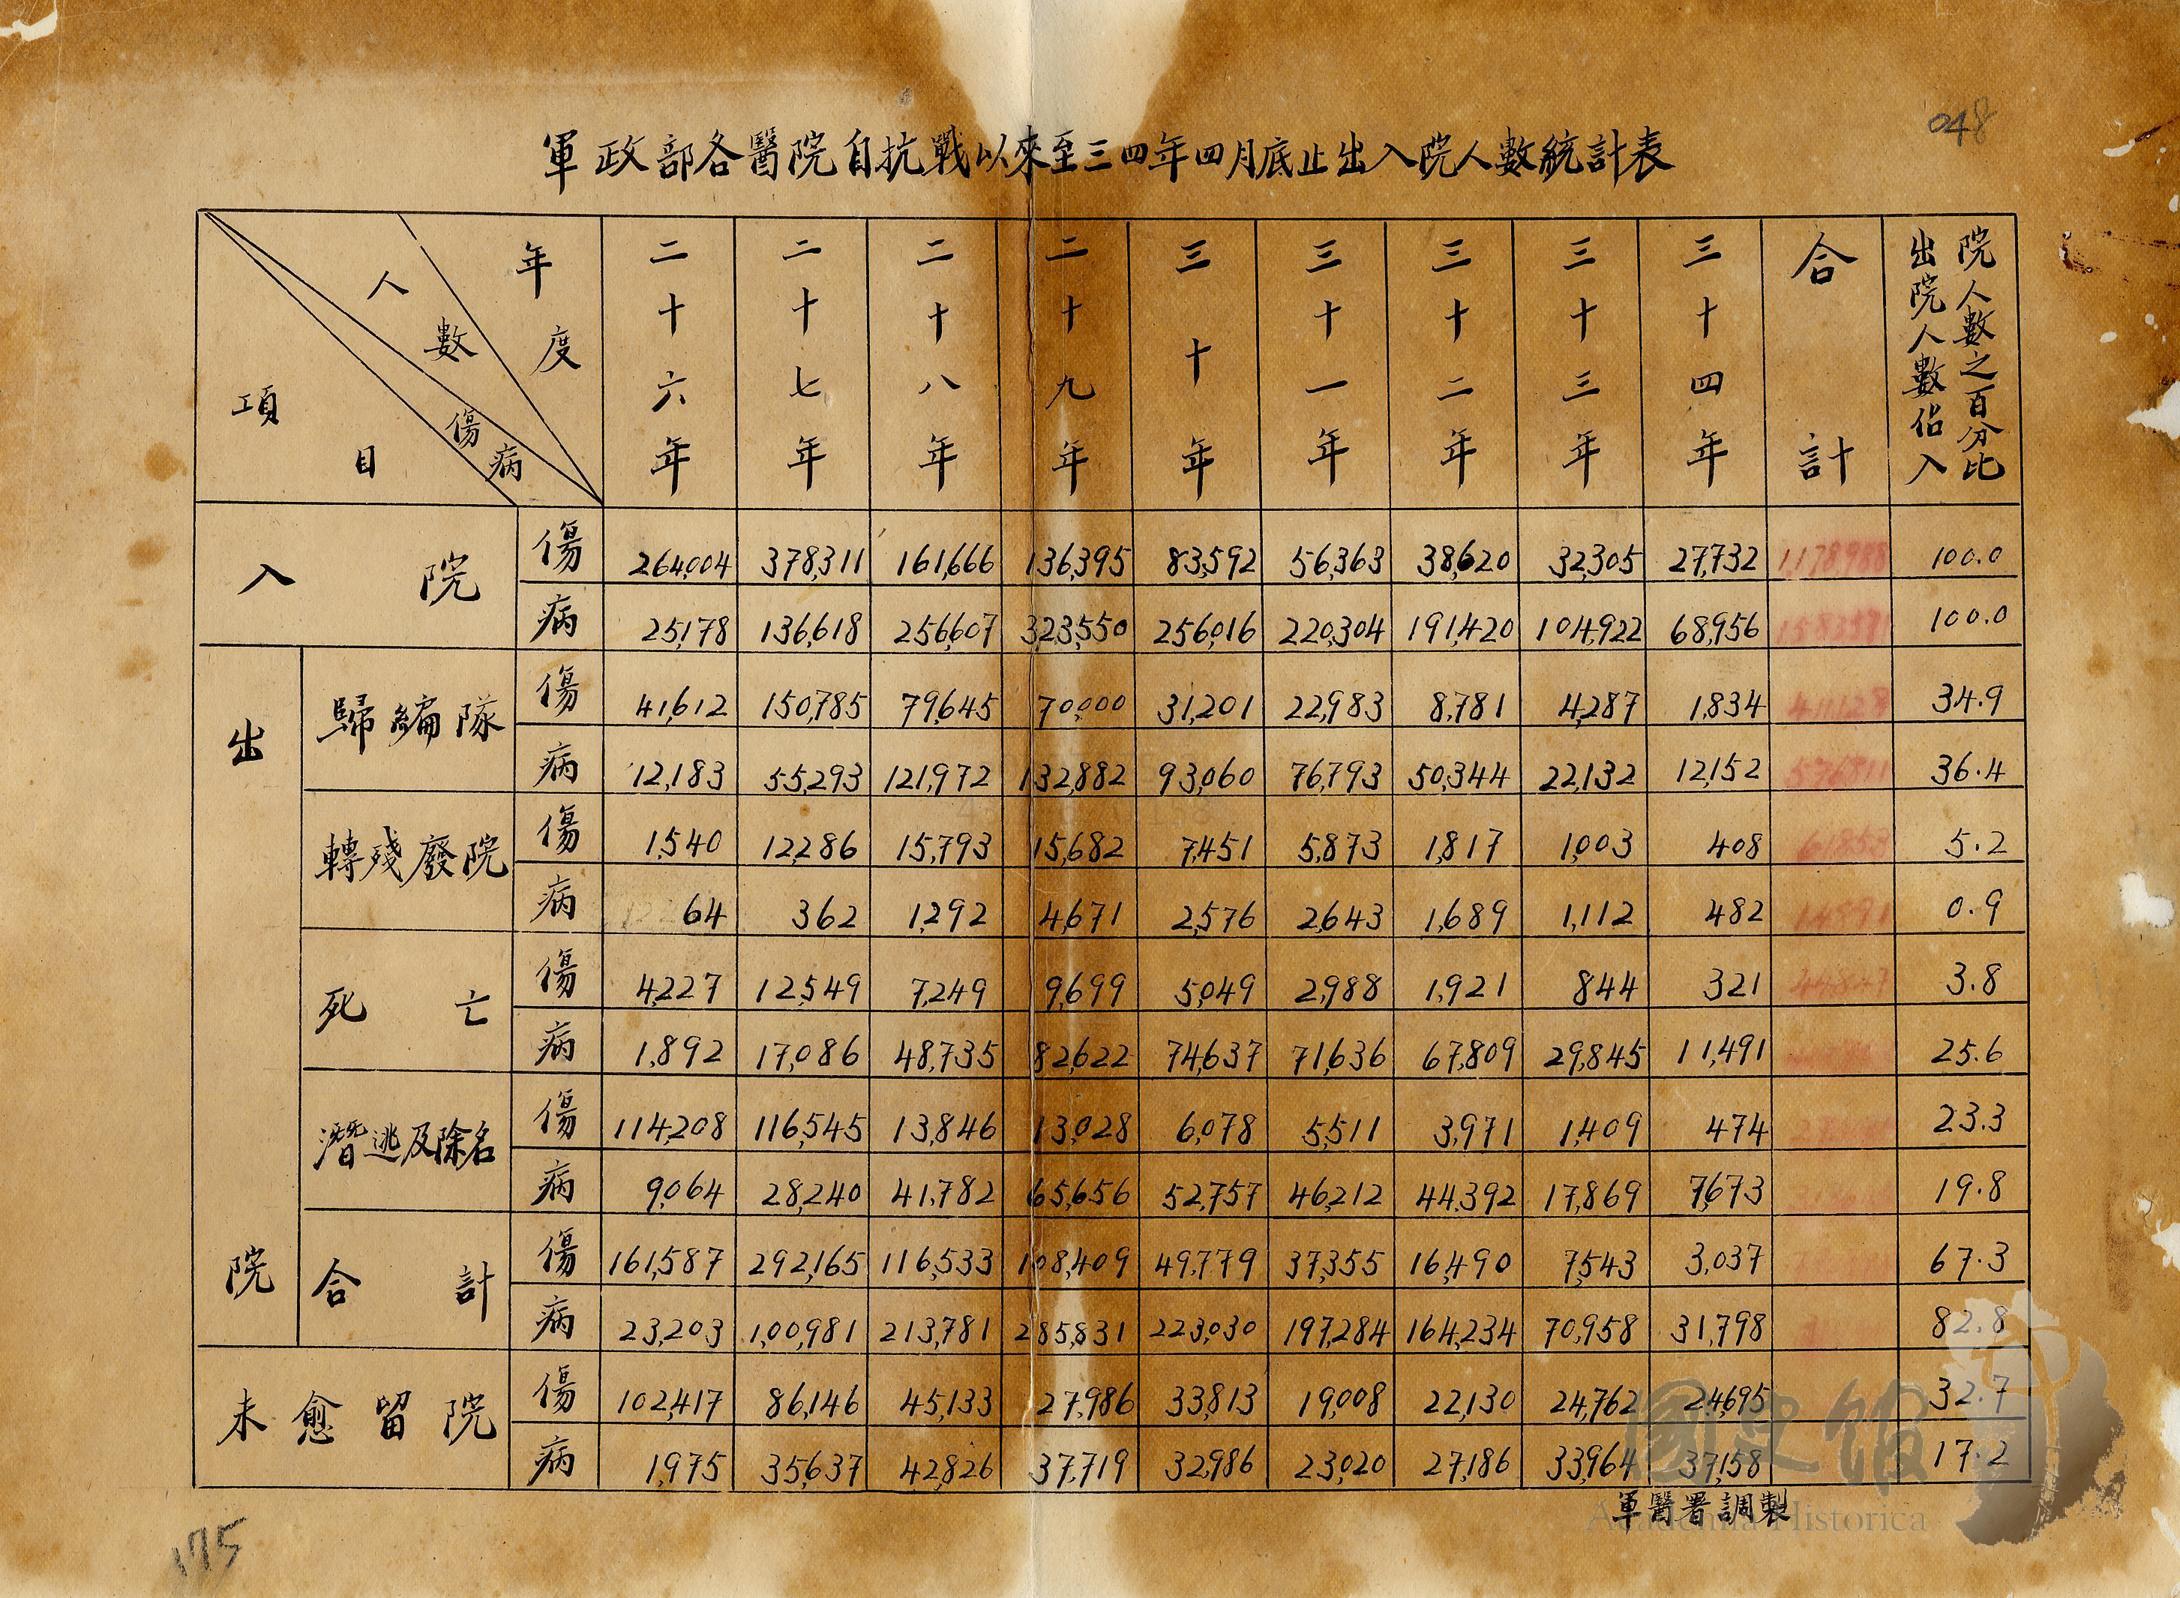 048
軍政部各醫院自抗戰以來至三四年四月底止出入院人數統計表
年度 人數 傷病 項目 二十六年 二十七年 二十八年 二十九年 三十年 三十一年 三十二年 三十三年 三十四年 合計 出院人數佔入院人數之百分比
入院 傷 264,004 378,311 161,666 136,395 83,592 56,363 38,620 32,305 27,732 1,178,988 100.0
病 25,178 136,618 256,607 323,550 256,016 220,304 191,420 104,922 68,956 100.0
出院 歸編隊 傷 41,612 150,785 79,645 70,000 31,201 22,983 8,781 4,287 1,834 411,128 34.9
病 12,183 55,293 121,972 132,882 93,060 76,793 50,344 22,132 12,152 576,811 36.4
轉殘廢院 傷 1,540 12,286 15,793 15,682 7,451 5,873 1,817 1,003 408 61,853 5.2
病 64 362 1,292 4,671 2,576 2,643 1,689 1,112 482 14,891 0.9
死亡 傷 4,227 12,549 7,249 9,699 5,049 2,988 1,921 844 321 44,847 3.8
病 1,892 17,086 48,735 82,622 74,637 71,636 67,809 29,845 11,491 25.6
潛逃及除名 傷 114,208 116,545 13,846 13,028 6,078 5,511 3,971 1,409 474 23.3
病 9,064 28,240 41,782 65,656 52,757 46,212 44,392 17,869 7,673 19.8
合計 傷 161,587 292,165 116,533 108,409 49,779 37,355 16,490 7,543 3,037 67.3
病 23,203 1,00,981 213,781 285,831 223,030 197,284 164,234 70,958 31,798 82.8
未愈留院 傷 102,417 86,146 45,133 27,986 33,813 19,008 22,130 24,762 24,695 32.7
病 1,975 35,637 42,826 37,719 32,986 23,020 27,186 33,964 37,158 17.2
軍醫署調製
國史館
Academia Historica
175